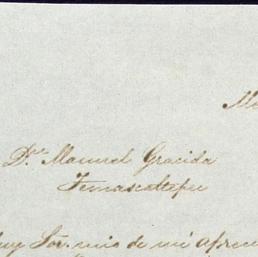 Mé
Dn. Manuel Gracida
Temascaltepec
uy Sór. mio de mi apreci